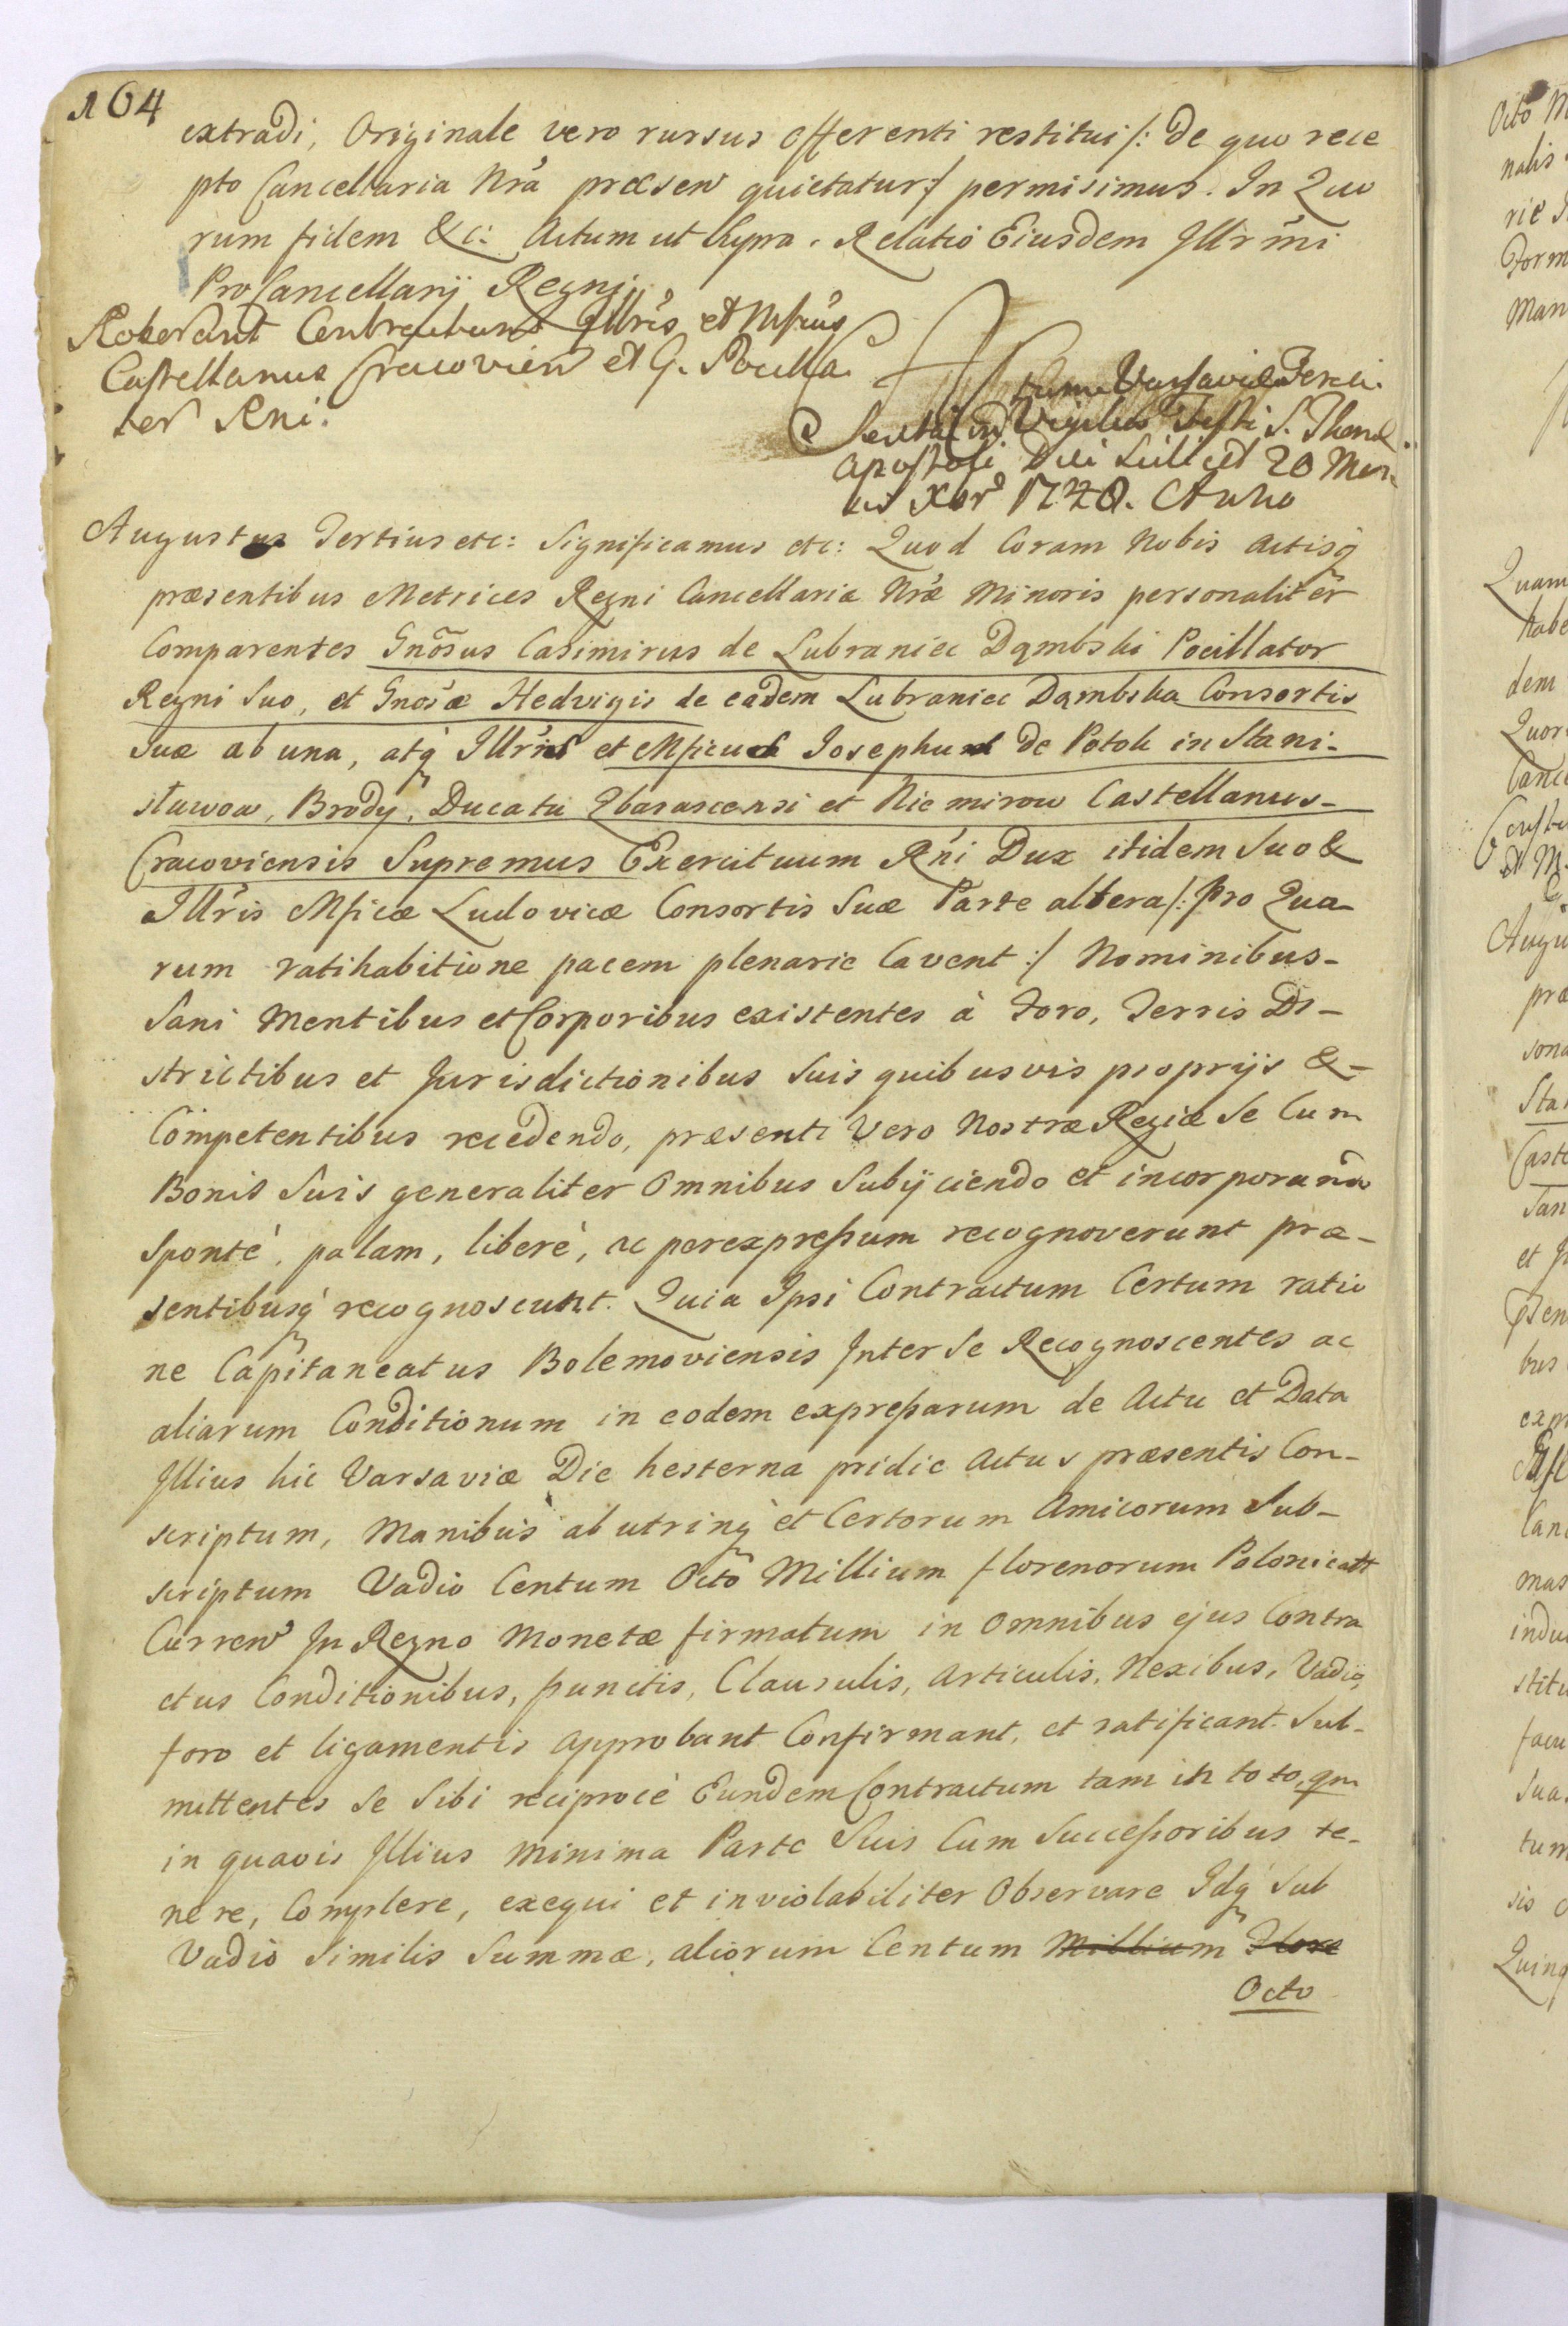 164
extradi, Originale vero rursus Offerenti restitui /: De quo rece
pto Cancellaria Nrã præsen quietatur :/ permisimus. In Quo
rum fidem &c: Actum ut Supra. Relatio Eiusdem Illrm̃i
ProCancellarij Regni
Roberant Contractum Illr̃is et Mficus
Castellanus Cracovien et G. Pocilla
tor Rni.
Actum Varsaviæ Feria
Sexta in Vigilia Festi S. Thomæ
Apostoli Die Scilicet 20 Men
sis Xbr 1740. Anno
Augustus Tertius etc: Significamus etc: Quod Coram Nobis Actisq̃
præsentibus Metrices Regni Cancellariæ Nræ Minoris personalitèr
Comparentes Gnõsus Casimirus de Lubraniec Dąmbski Pocillator
Regni Suo, et Gnosæ Hedvigis de eadem Lubraniec Dąmbska Consortis
Suæ ab una, atq̃ Illris et Mficus Josephus de Potok in Stani-
sławow, Brody, Ducatu Zbarascensi et Niemirow Castellanus-
Cracoviensis Supremus Exercituum Rñi Dux itidem Suo &
Illr̃is Mficæ Ludovicæ Consortis Suæ Parte altera /: pro Qua-
rum ratihabitione pacem plenarie Cavent :/ Nominibus-
Sani Mentibus et Corporibus existentes à Foro, Terris Di-
strictibus et Jurisdictionibus Suis quibusvis proprijs &-
Competentibus recedendo, præsenti Vero Nostræ Regiæ Se Cum
Bonis Suis generaliter Omnibus Subijciendo et incorporando
Spontè, palam, liberè, ac perexpreßum recognoverunt præ-
sentibusq̃ recognoscunt. Quia Ipsi Contractum Certum ratio
ne Capitaneatus Bolemoviensis Inter Se Recognoscentes ac
aliarum Conditionum in eodem expreßarum de Actu et Data
Illius hic Varsaviæ Die hesterna pridie Actus præsentis Con-
scriptum, Manibus ab utrinq̃ et Certorum Amicorum Sub-
scriptum Vadio Centum Octo Millium florenorum Polonicatt
Curren In Regno Monetæ firmatum in Omnibus ejus Contra
ctus Conditionibus, punctis, Clausulis, Articulis, Nexibus, Vadijs,
foro et ligamentis Approbant Confirmant, et ratificant. Sub-
mittentes Se Sibi reciprocè Eundem Contractum tam in toto, qm
in quavis Illius Minima Parte Suis Cum Succeßoribus te-
nere, Complere, exequi et inviolabiliter Observare Idq̃ Sub
Vadio Similis Summæ, aliorum Centum Millium Flore
Octo